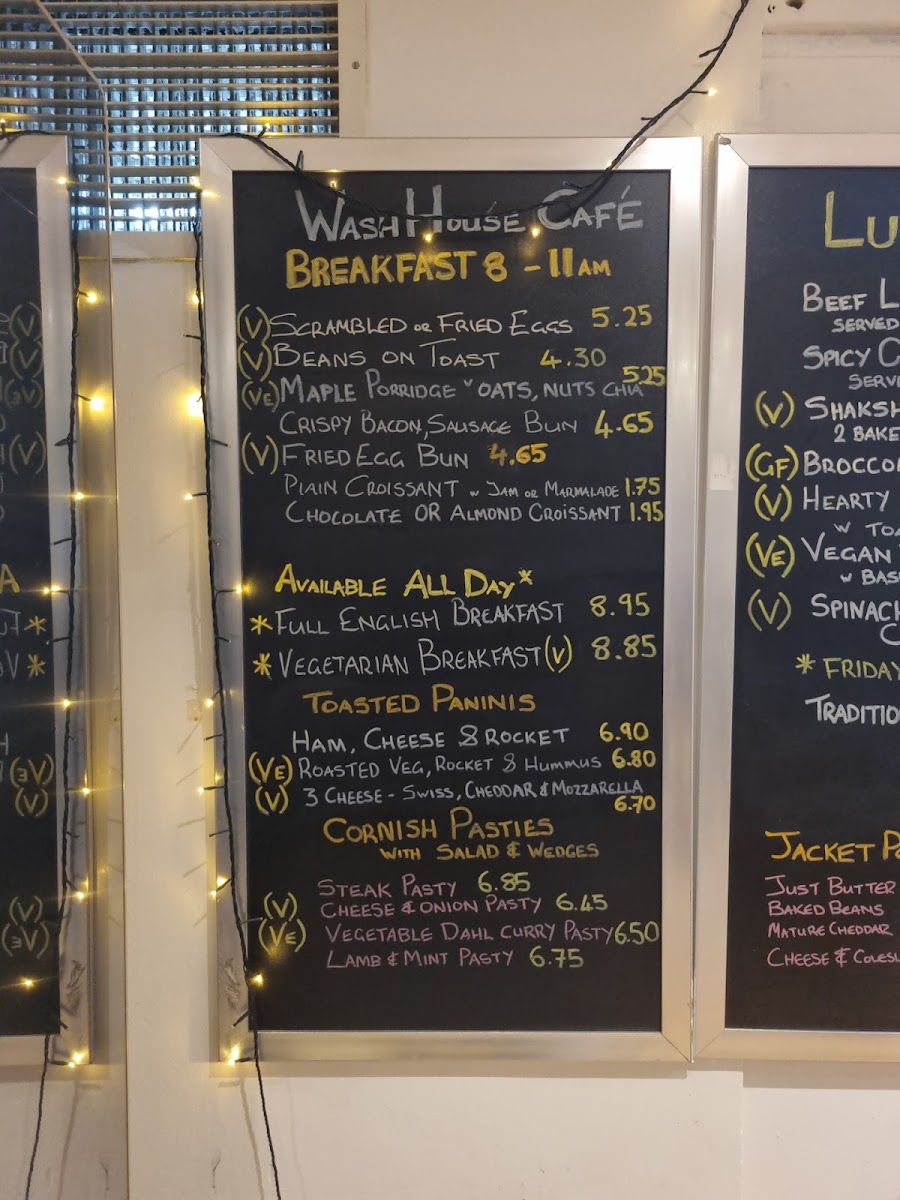 WASH HOUSE CAFÉ
BREAKFAST 8 - 11 AM
(V) SCRAMBLED OR FRIED EGGS 5.25
(V) BEANS ON TOAST 4.30
(VE) MAPLE PORRIDGE W OATS, NUTS CHIA 5.25
CRISPY BACON, SAUSAGE BUN 4.65
(V) FRIED EGG BUN 4.65
PLAIN CROISSANT W JAM OR MARMALADE 1.75
CHOCOLATE OR ALMOND CROISSANT 1.95
AVAILABLE ALL DAY*
* FULL ENGLISH BREAKFAST 8.95
* VEGETARIAN BREAKFAST (V) 8.85
TOASTED PANINIS
HAM, CHEESE & ROCKET 6.90
(VE) ROASTED VEG, ROCKET & HUMMUS 6.80
(V) 3 CHEESE - SWISS, CHEDDAR & MOZZARELLA
6.70
CORNISH PASTIES
WITH SALAD & WEDGES
STEAK PASTY 6.85
(V) CHEESE & ONION PASTY 6.45
(VE) VEGETABLE DAHL CURRY PASTY 6.50
LAMB & MINT PASTY 6.75
LU
BEEF L
SERVED
SPICY C
SERVE
(V) SHAKSH
2 BAKE
(GF) BROCCO
(V) HEARTY
W TOA
(VE) VEGAN
W BAS
(V) SPINACH
C
* FRIDAY
TRADITIO
JACKET PO
JUST BUTTER
BAKED BEANS
MATURE CHEDDAR
CHEESE & COLESL